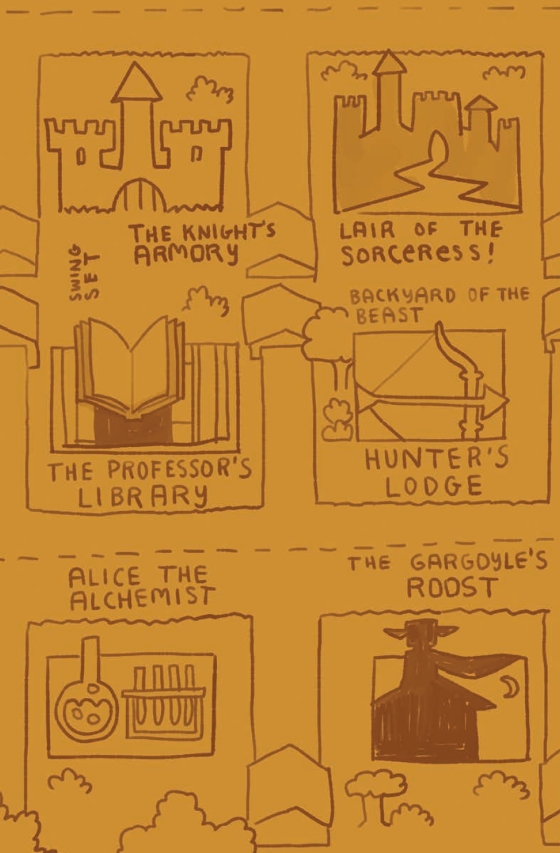 THE KNIGHT'S
ARMORY
LAIR OF THE
SORCERESS!
SWING
SET
BACKYARD OF THE
BEAST
THE PROFESSOR'S
LIBRARY
HUNTER'S
LODGE
ALICE THE
ALCHEMIST
THE GARGOYLE'S
ROOST